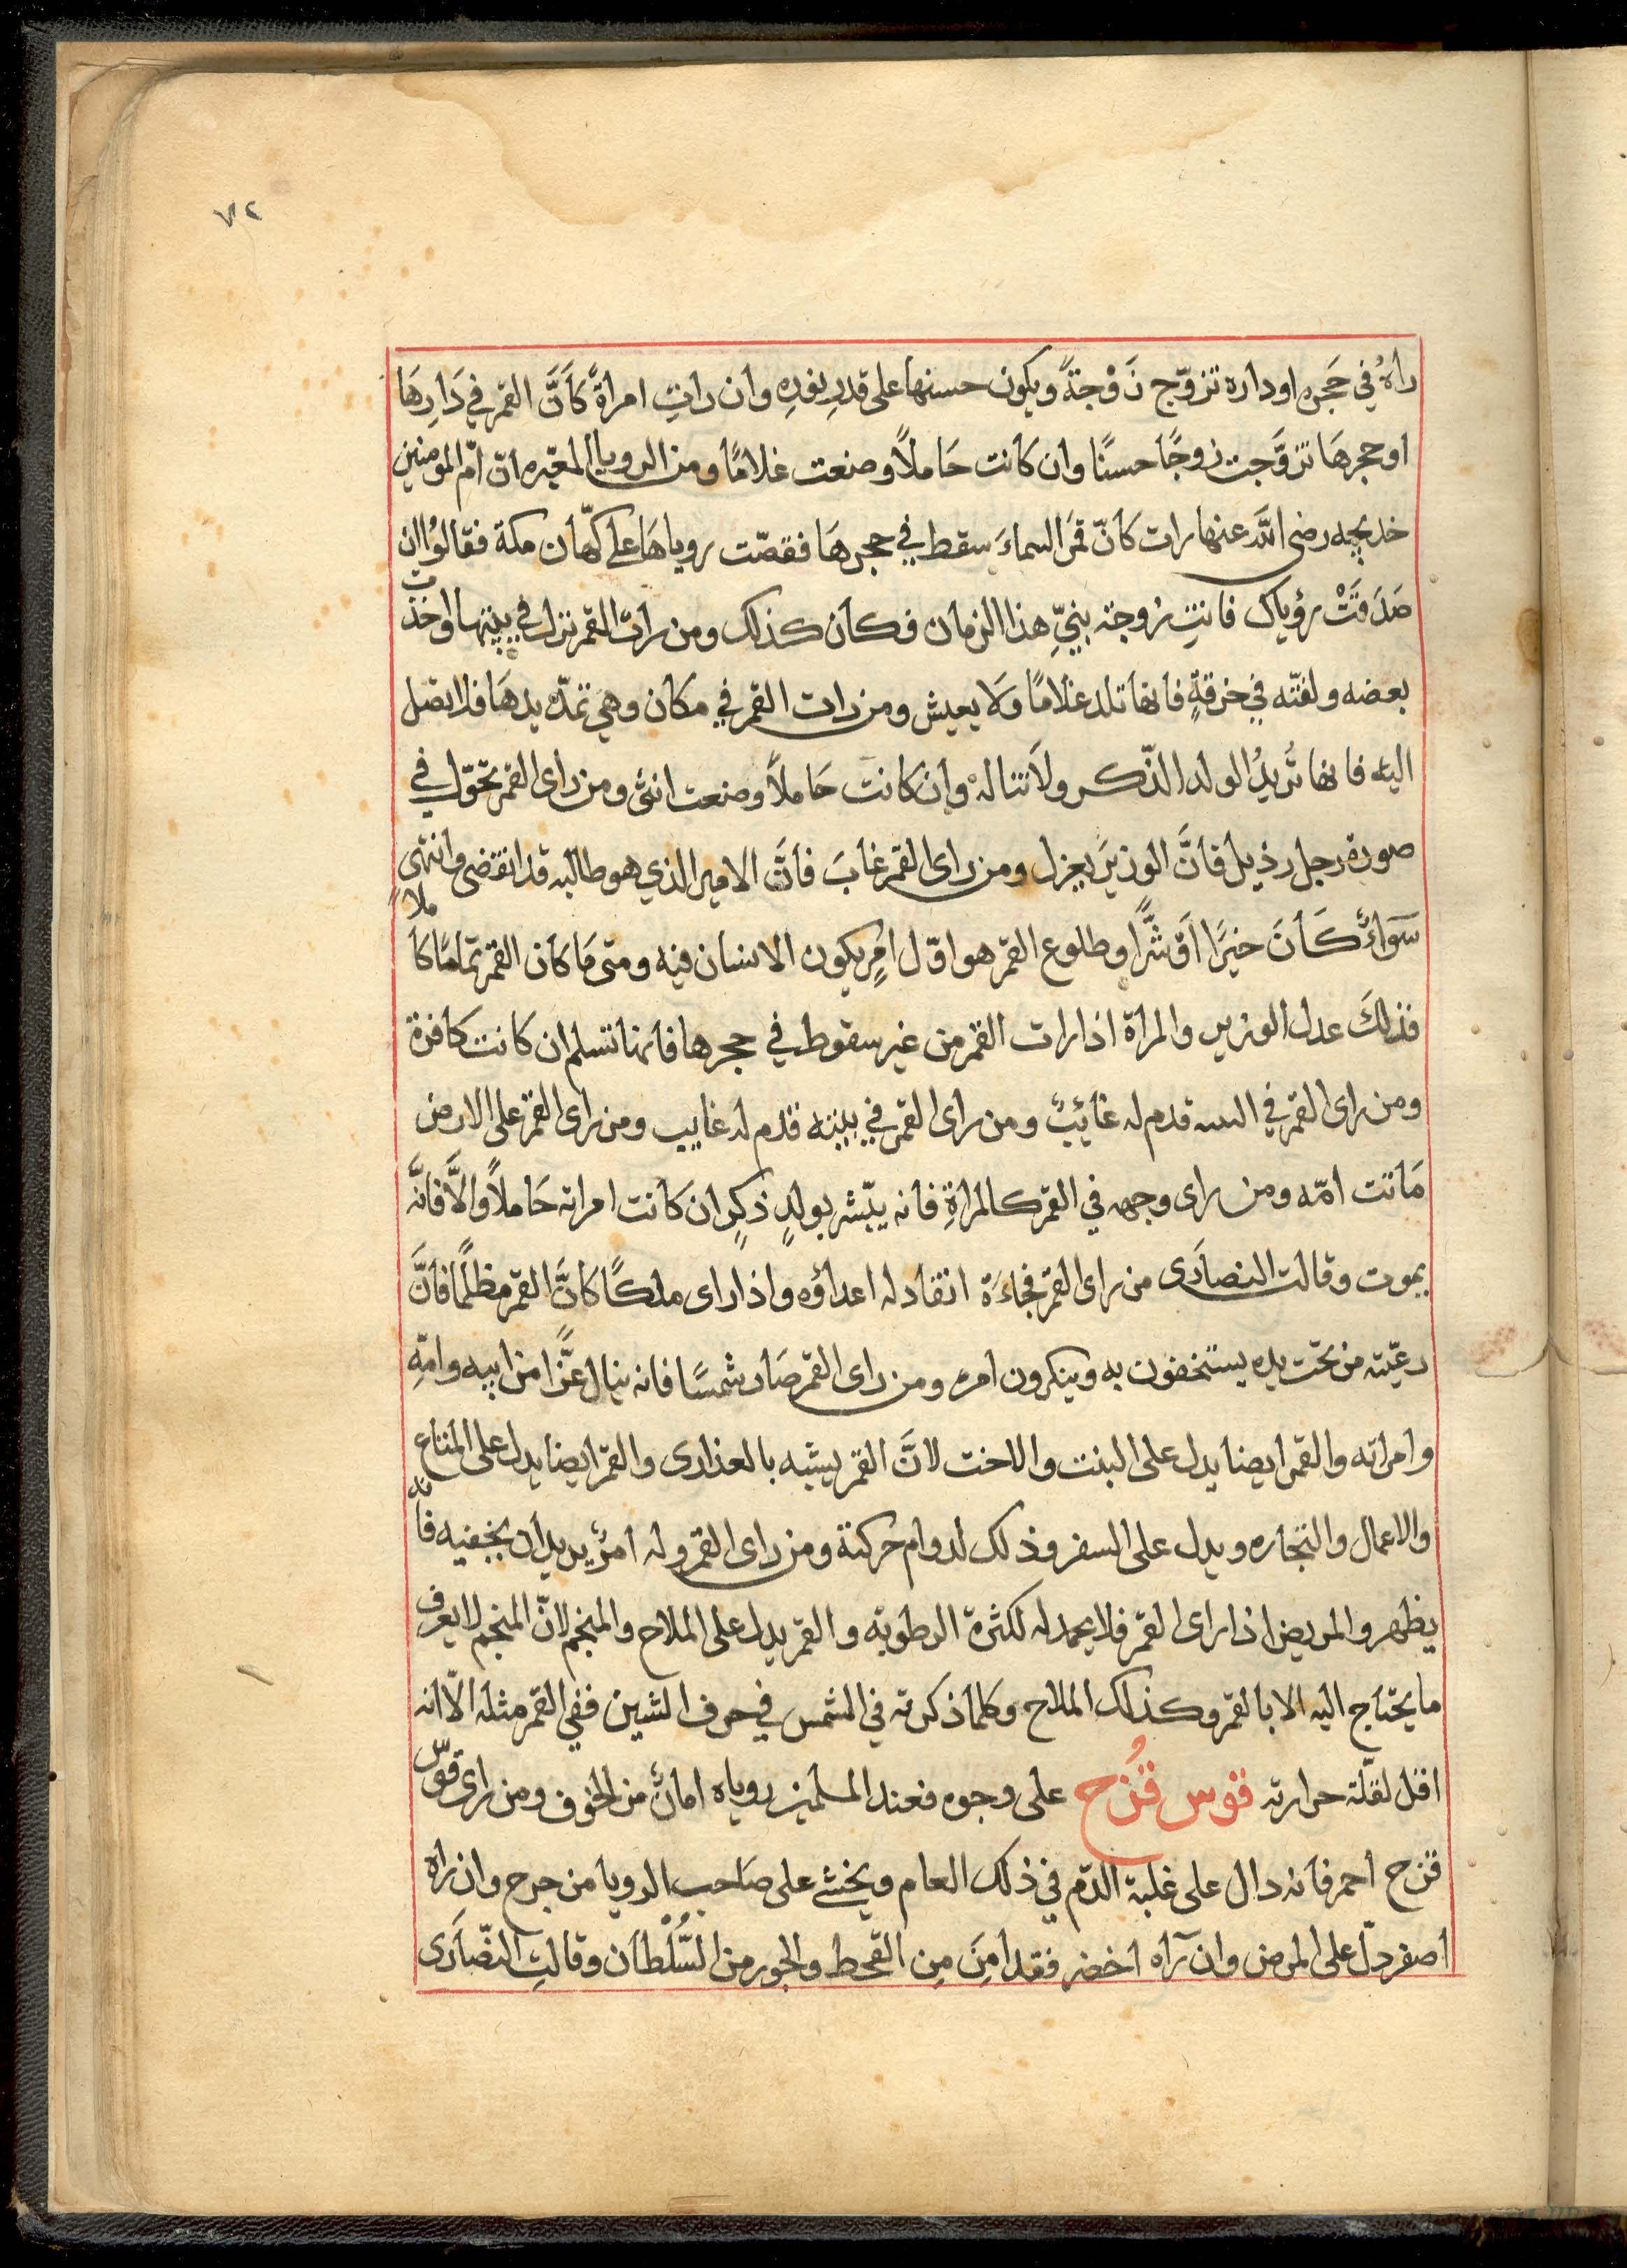 ٧٢
راهُ في حَجره او داره تزوّج زَوْجةً ويكون حسنها على قدرِ نورِه وان راتِ امراةٌ كَاَنَّ القمر في دَارِهَا
او حجرهَا تزوَّجت زوجًا حسنًا وان كانت حَاملاً وضعت غلامًا ومن الرويا المعبّره انّ امّ المومنين
خديجه رضى اللّه عنها رات كَانّ قمَر السماءَ سقط في حجرهَا فقصّت روياهَا على كهّان مكة فقالوُا ان
صَدَقَتْ رؤياك فانتِ زوجة بنيِّ هذا الزمان فكان كذلك ومن رات القمر نزل في بيتها واخذت
بعضه ولفتّه في خرقةٍ فانها تلد غلامًا وَلا يعيش ومن رات القمر في مكان وهي تمدّ يدهَا فلا تصل
اليه فانها تُريدُ الولد الذّكر ولا تنالهُ وان كانت حَاملاً وضعت انثى ومن راى القمر تحوّل في
صورة رجل رذيل فانَّ الوزيَر يعزل ومن راى القمر غابَ فانَّ الامر الذي هو طالبه قد انقضى وانتهى
سَوَاءٌ كَانَ خيرًا اوَ شّرًا وطلوع القمر هو اوّل امرٍ يكون الانسان فيه ومتى مَا كان القمر تمامًا كاملاً
فذلكَ عدل الوزير والمراة اذا رات القمر من غير سقوط في حجرها فانها تسلم ان كانت كافرة
ومن راى القمر في قدم له غائبٌ ومن راى القمر في بيته قدم له غايب ومن راى القمر على الارض
مَاتت امّه ومن راى وجهه في القمر كالمراةِ فانه يبّشر بولدٍ ذكرٍ ان كانت امراته حَاملاً والاَّ فانَّه
يموت وقالت النصارَى من راى القمر فجاءَة انقاد له اعداؤه واذا راى ملكًا كانَّ القمر مظلمًا فانَّ
رعيّته من تحت يده يستخفون به وينكرون امره ومن راى القمر صَار شمسًا فانه ينال عزًّا من ابيه وامّهِ
وامراته والقمر ايضا يدل على البنت والاخت لانَّ القمر يشبه بالعذارى والقمر ايضا يدل على المتاع
والاعمال والتجاره ويدل على السفر وذلك لدوام حركتة ومن راى القمر وله امرٌ يريد ان يخفيه فانه
يظهر والمريض اذا راى القمر فلا يحمد له لكثرة الرطوبة والقمر يدل على الملاح والمنجم لانّ المنجم لا يعرف
ما يحتاج اليه الا بالقمر وكذلك الملاح وكلما ذكرته في الشمس في حرف الشين ففي القمر مثله الاّ انه
اقل لقلّة حرارته قوس قُزح على وجوه فعند المسلمين روياه امانٌ من الخوف ومن راى قوس
قزح احمر فانه دال على غلبة الدّم في ذلك العام ويخشى على صَاحب الرويا من جرح وان راه
اصفر دلّ على المرض وان رآه اخضر فقد امِنَ مِن القحط والجور من السُّلْطان وقالتِ النصّارَى